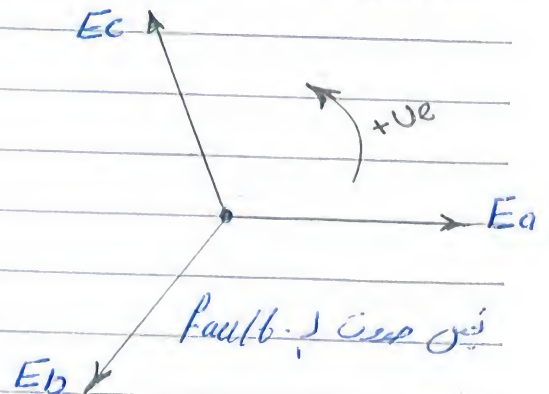 Ec
+ve
Ea
حدوث ال Fault
Eb